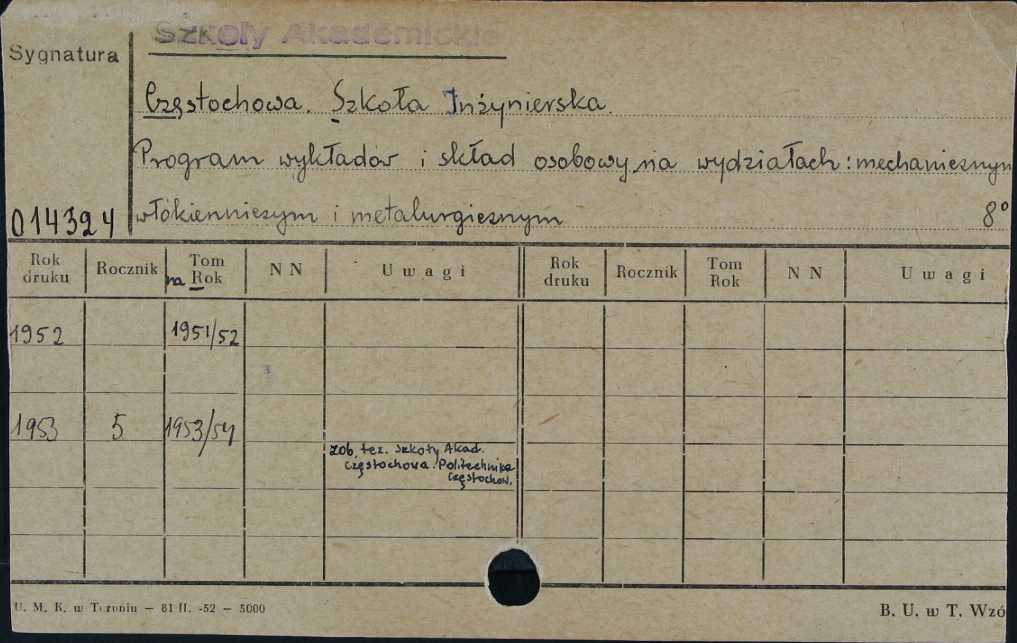 Szkoły Akademickie
Sygnatura
Częstochowa. Szkoła Inżynierska.
Program wykładów i skład osobowy na wydziałach: mechanicznym
włókienniczym i metalurgicznym 8°
014324
Rok druku Rocznik Tom na Rok NN Uwagi Rok druku Rocznik Tom Rok NN Uwagi
1952 1951/52
1953 5 1953/54
zob. też. Szkoły Akad.
Częstochowa. Politechnika
Częstochow.
U. M. K. w Toruniu — 81 II. -52 — 5000 B. U. w T. Wzó